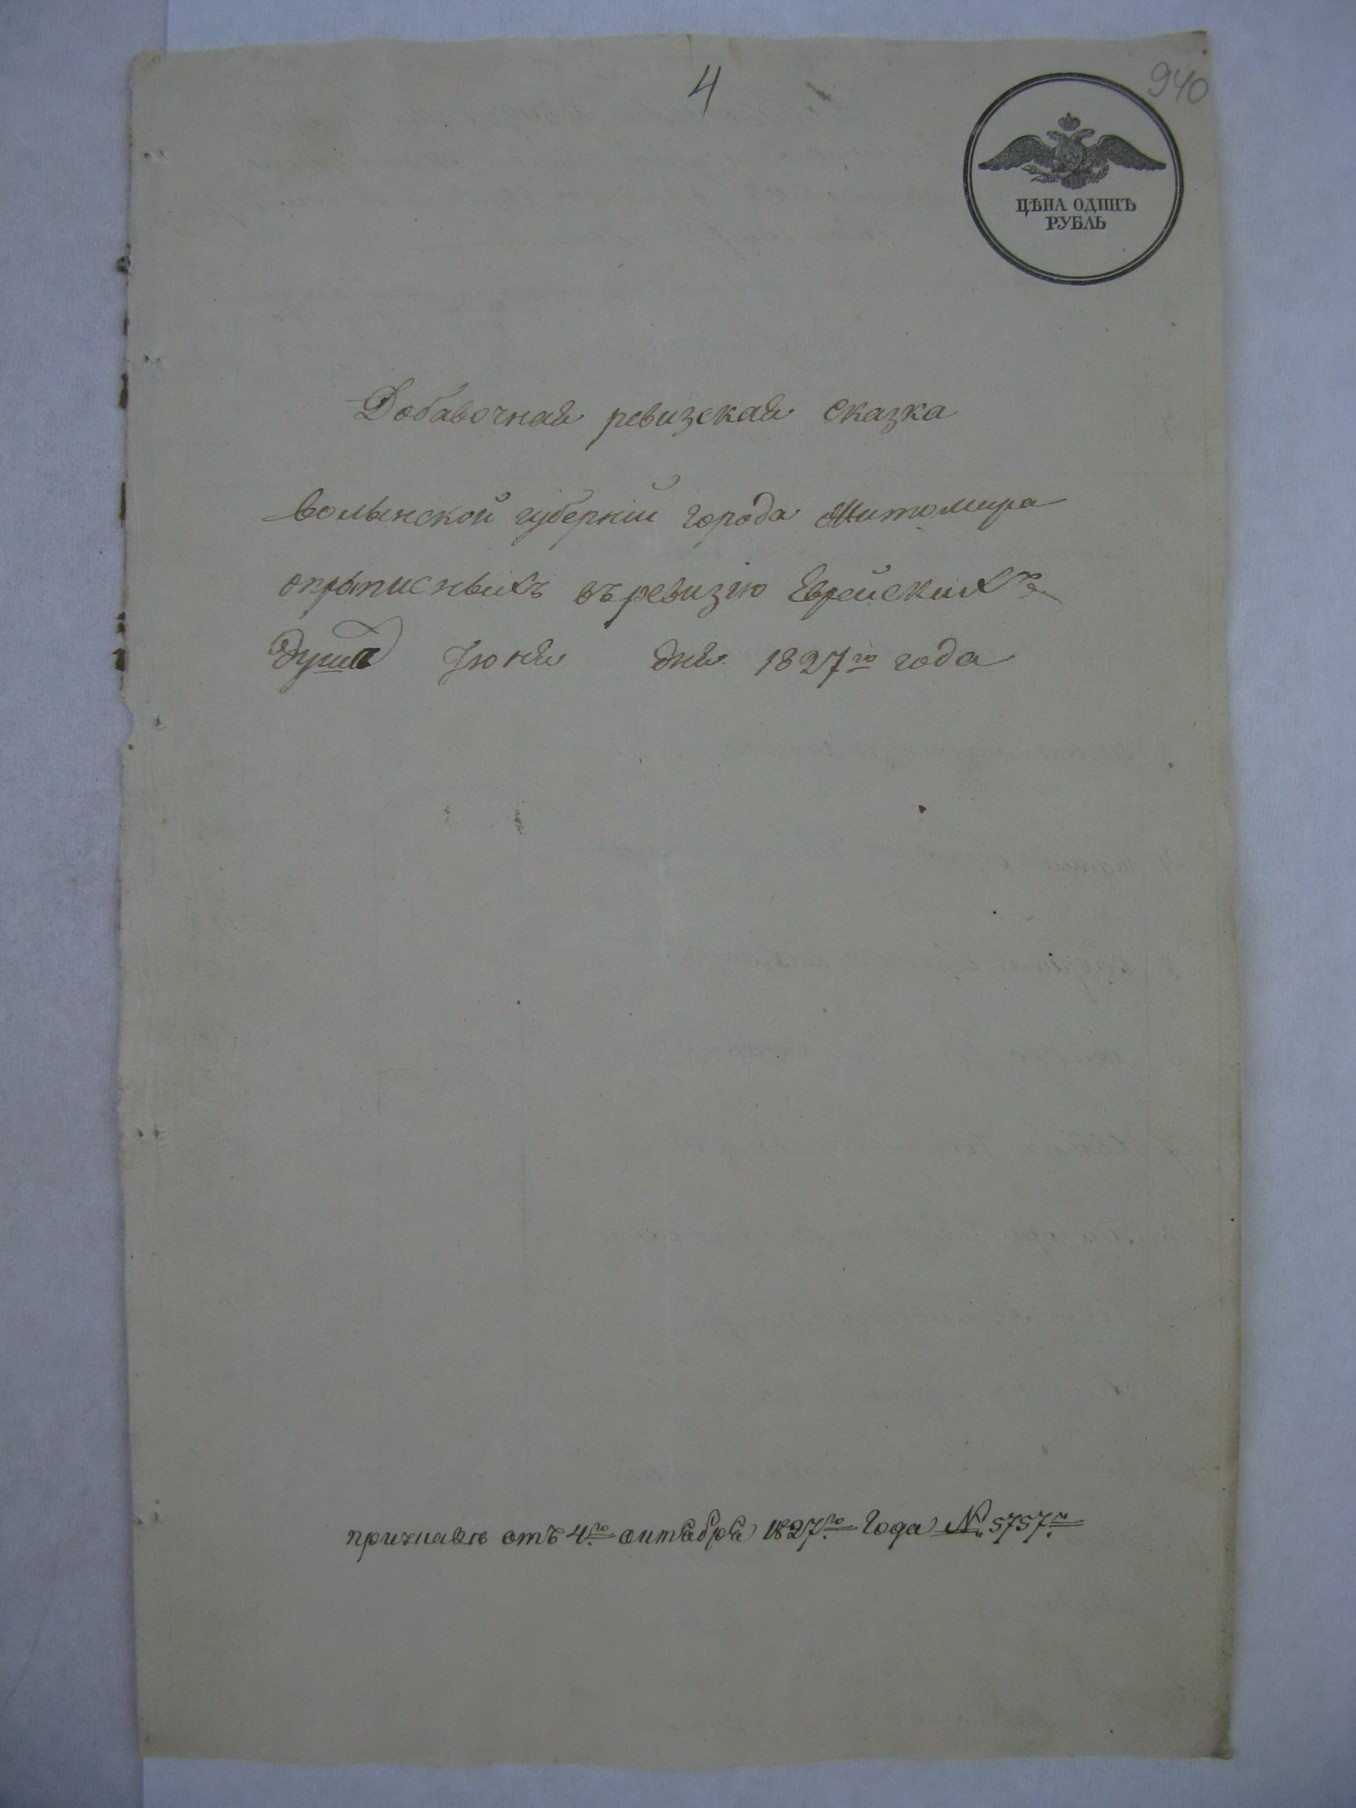 4
940
ЦѢНА ОДИНЪ
РУБЛЬ
Добавочная ревизская сказка
Волынской губерніи города Житомира
о прописныхъ въ ревизію Еврейскихъ
душа Іюня дня 1827го года
отъ 4го октября 1827го Года № 5757м